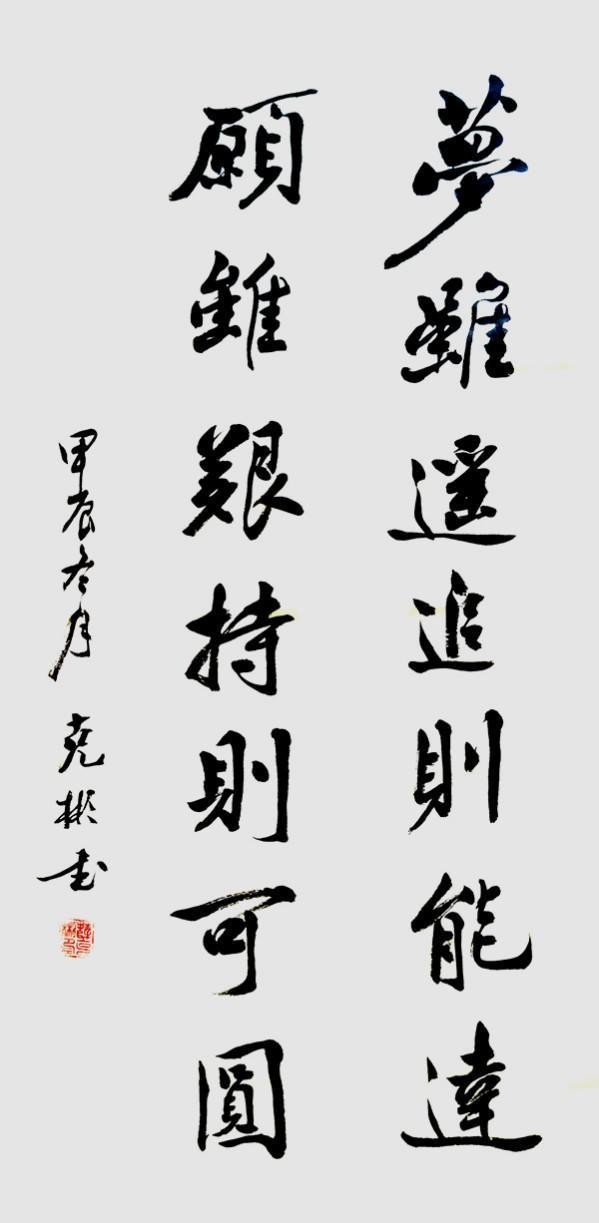 夢雖遥追則能達
願雖艱持則可圓
甲辰冬月 尭彬书